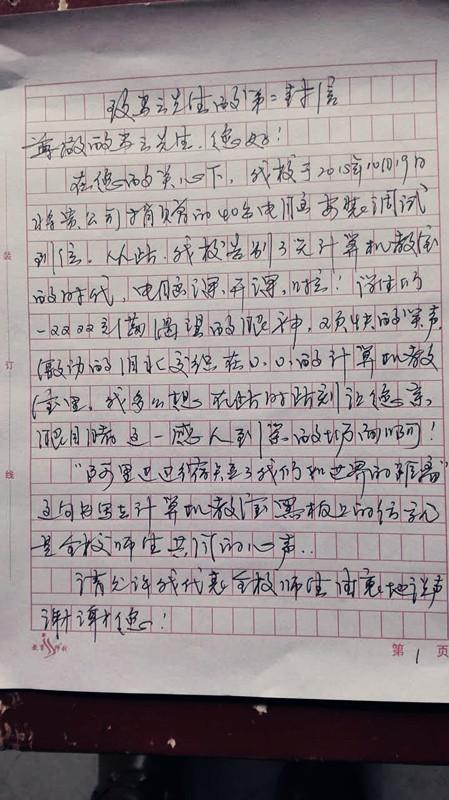 致马云先生的第二封信
尊敬的马云先生，您好！
在您的关心下，我校于2015年10月19日
将贵公司捐资的40台电脑安装调试
到位。从此，我校告别了无计算机教室
的时代，电脑课，开课，啦！学生们
一双双充满渴望的眼神，欢快的笑声
激动的泪水交织在 的计算机教
室里。我多么想在此时此刻让您亲
眼目睹这一感人至深的场面啊！
“阿里巴巴缩短了我们和世界的距离”
这句书写在计算机教室黑板上的
是全校师生共同的心声..
请允许我代表全校师生 地说声
谢谢您！
装
订
线
教育
第 1 页